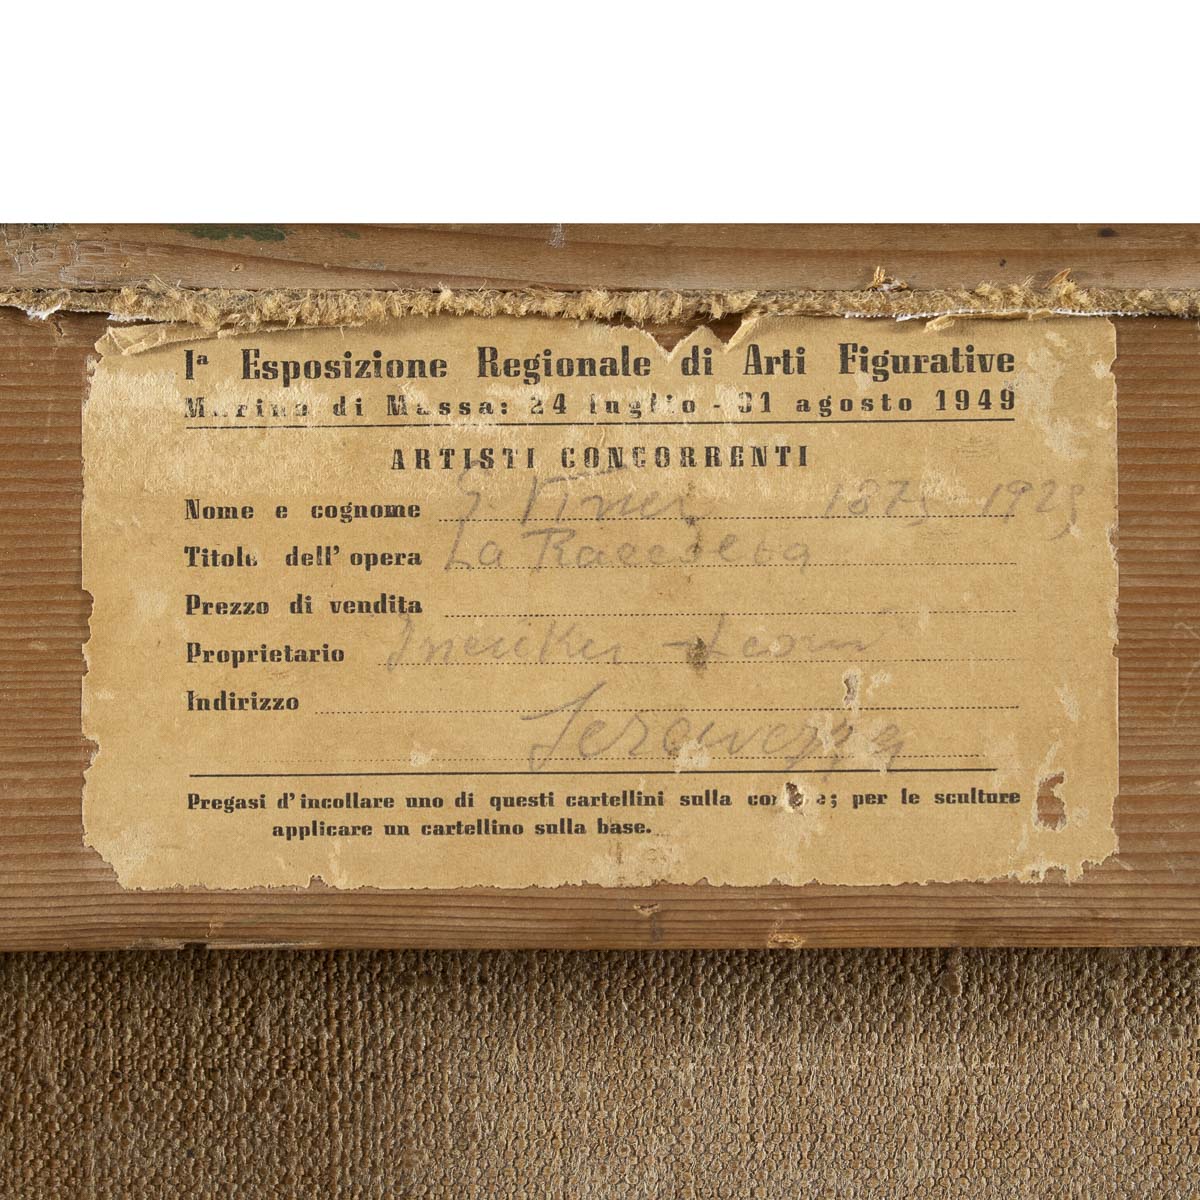 Iª Esposizione Regionale di Arti Figurative
Marina di Massa: 24 luglio - 31 agosto 1949
ARTISTI CONCORRENTI
Nome e cognome G. Viner 1875 - 1925
Titolo dell' opera La Raccolta
Prezzo di vendita
Proprietario
Indirizzo
Seravezza
Pregasi d'incollare uno di questi cartellini sulla cornice; per le sculture
applicare un cartellino sulla base.